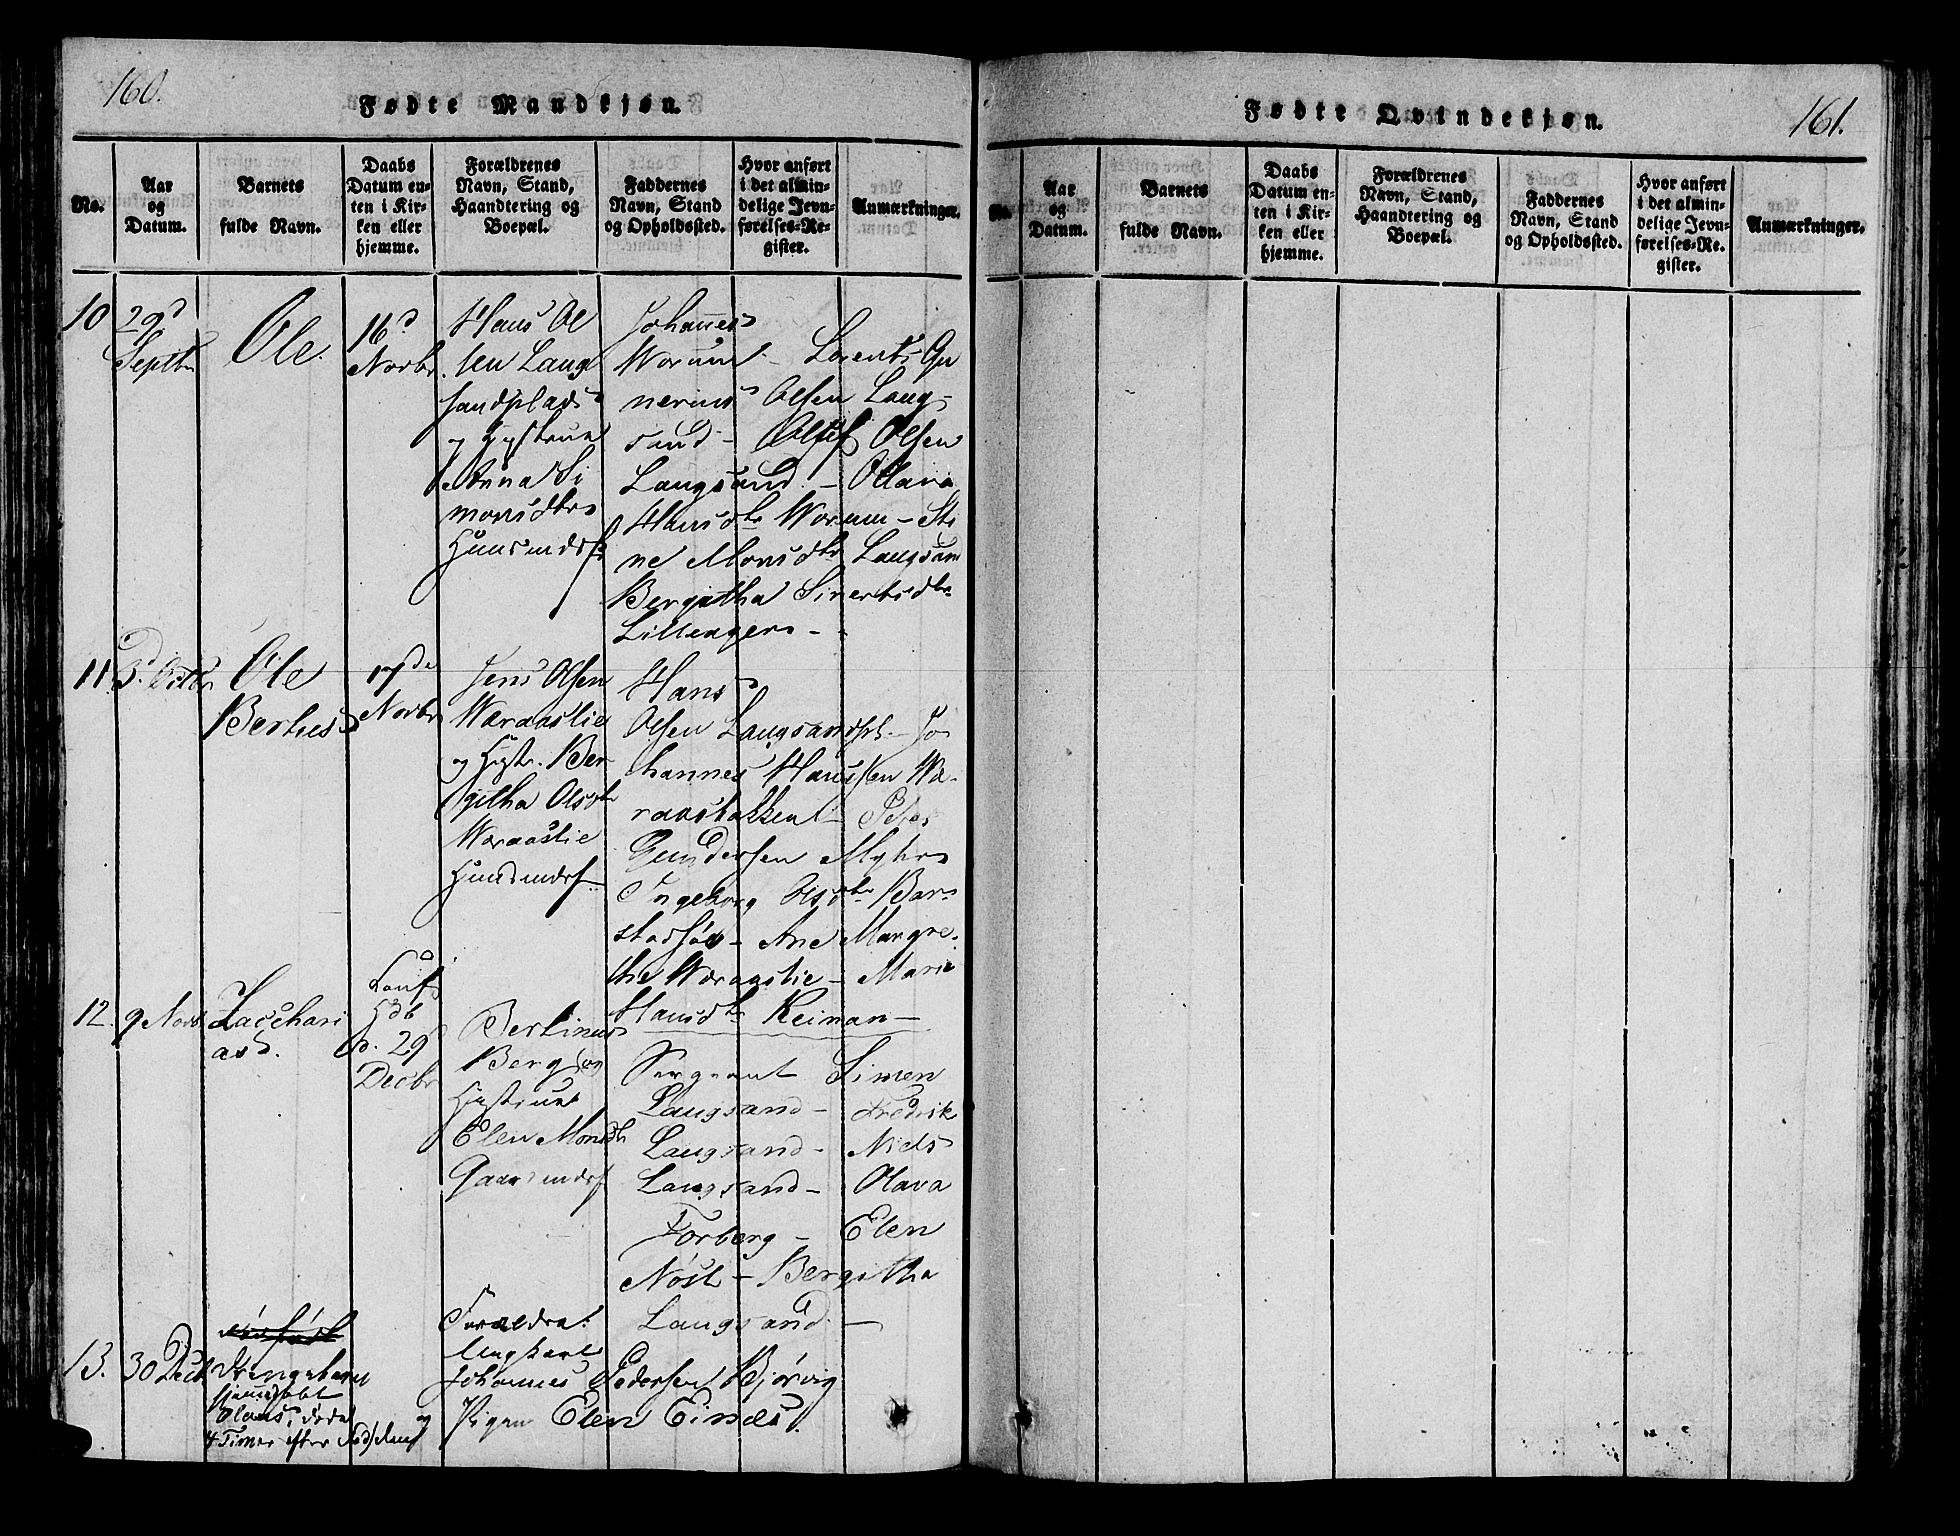 160.
Fødte Mandkjøn.
No.
Aar
og
Datum.
Barnets
fulde Navn.
Daabs
Datum en-
ten i Kir-
ken eller
hjemme.
Forældrenes
Navn, Stand,
Haandtering og
Boepæl.
Faddernes
Navn, Stand
og Opholdssted.
Hvor anført
i det almin-
delige Jevn-
førelses-Re-
gister.
Anmærkninger.
10
29d
Septbr
Ole.
16d
Novbr.
Hans Ol
sen Lang
sandplads
og Hustrue
Anna Si
monsdtr
Huusmdsf
Johannes
Worum - Lorents Gu
nerius Olsen Lang-
sand - Olsen
Langsand - Olava
Hansdtr Worum - Sti
ne Monsdtr Langsan
Bergitha Sivertsdtr
Lillenger -
11.
3d Octbr
Ole
Bertius
17de
Novbr
Jens Olsen
Waraaslie
og Hustr. Ber
githa Olsdtr
Waraaslie
Huusmdsf.
Hans
Olsen Langsandpl. - Jo
hannes Hanssen Wa-
raasbakken - Peter
Gundersen Myhr
Ingeborg Olsdtr Bar-
stadsøe - Ane Margre-
the Waraaslie - Marie
Hansdtr Reinan -
12.
9 Novbr
Zacchari
as.
Hdb
d. 29
Decbr
Bertinus
Berg og
Hustrue
Elen Monsdtr
Gaardmdsf
Sergeant Simen
Langsand - Fredrik
Langsand - Niels
Langsand - Olava
Forberg - Elen
Nøst - Bergitha
Langsand. -
13.
30 Decbr
Drengebarn
hjemmedøbt
Olaus, døde
4 Timer efter Fødselen
Forældre:
Ungkarl
Johannes Pedersen Bjørvig
og Pigen Elen Einds.
Fødte Qvindekjøn.
161.
No.
Aar
og
Datum.
Barnets
fulde Navn.
Daabs
Datum en-
ten i Kir-
ken eller
hjemme.
Forældrenes
Navn, Stand,
Haandtering og
Boepæl.
Faddernes
Navn, Stand
og Opholdssted.
Hvor anført
i det almin-
delige Jevn-
førelses-Re-
gister.
Anmærkninger.